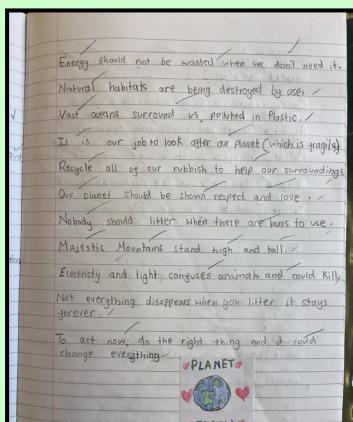 Energy should not be wasted when we don't need it.
Natural habitats are being destroyed by use,
Vast oceans surround us, polluted in Plastic.
It is our job to look after our planet (which is fragile)
Recycle all of our rubbish to help our surroundings
Our planet should be shown respect and love.
Nobody should litter when there are bins to use.
Majestic Mountains stand high and tall.
Electricty and light, confuses animals and could kill,
Not everything disappears when you litter it stays
forever.
To act now, do the right thing and it could
change everything
PLANET